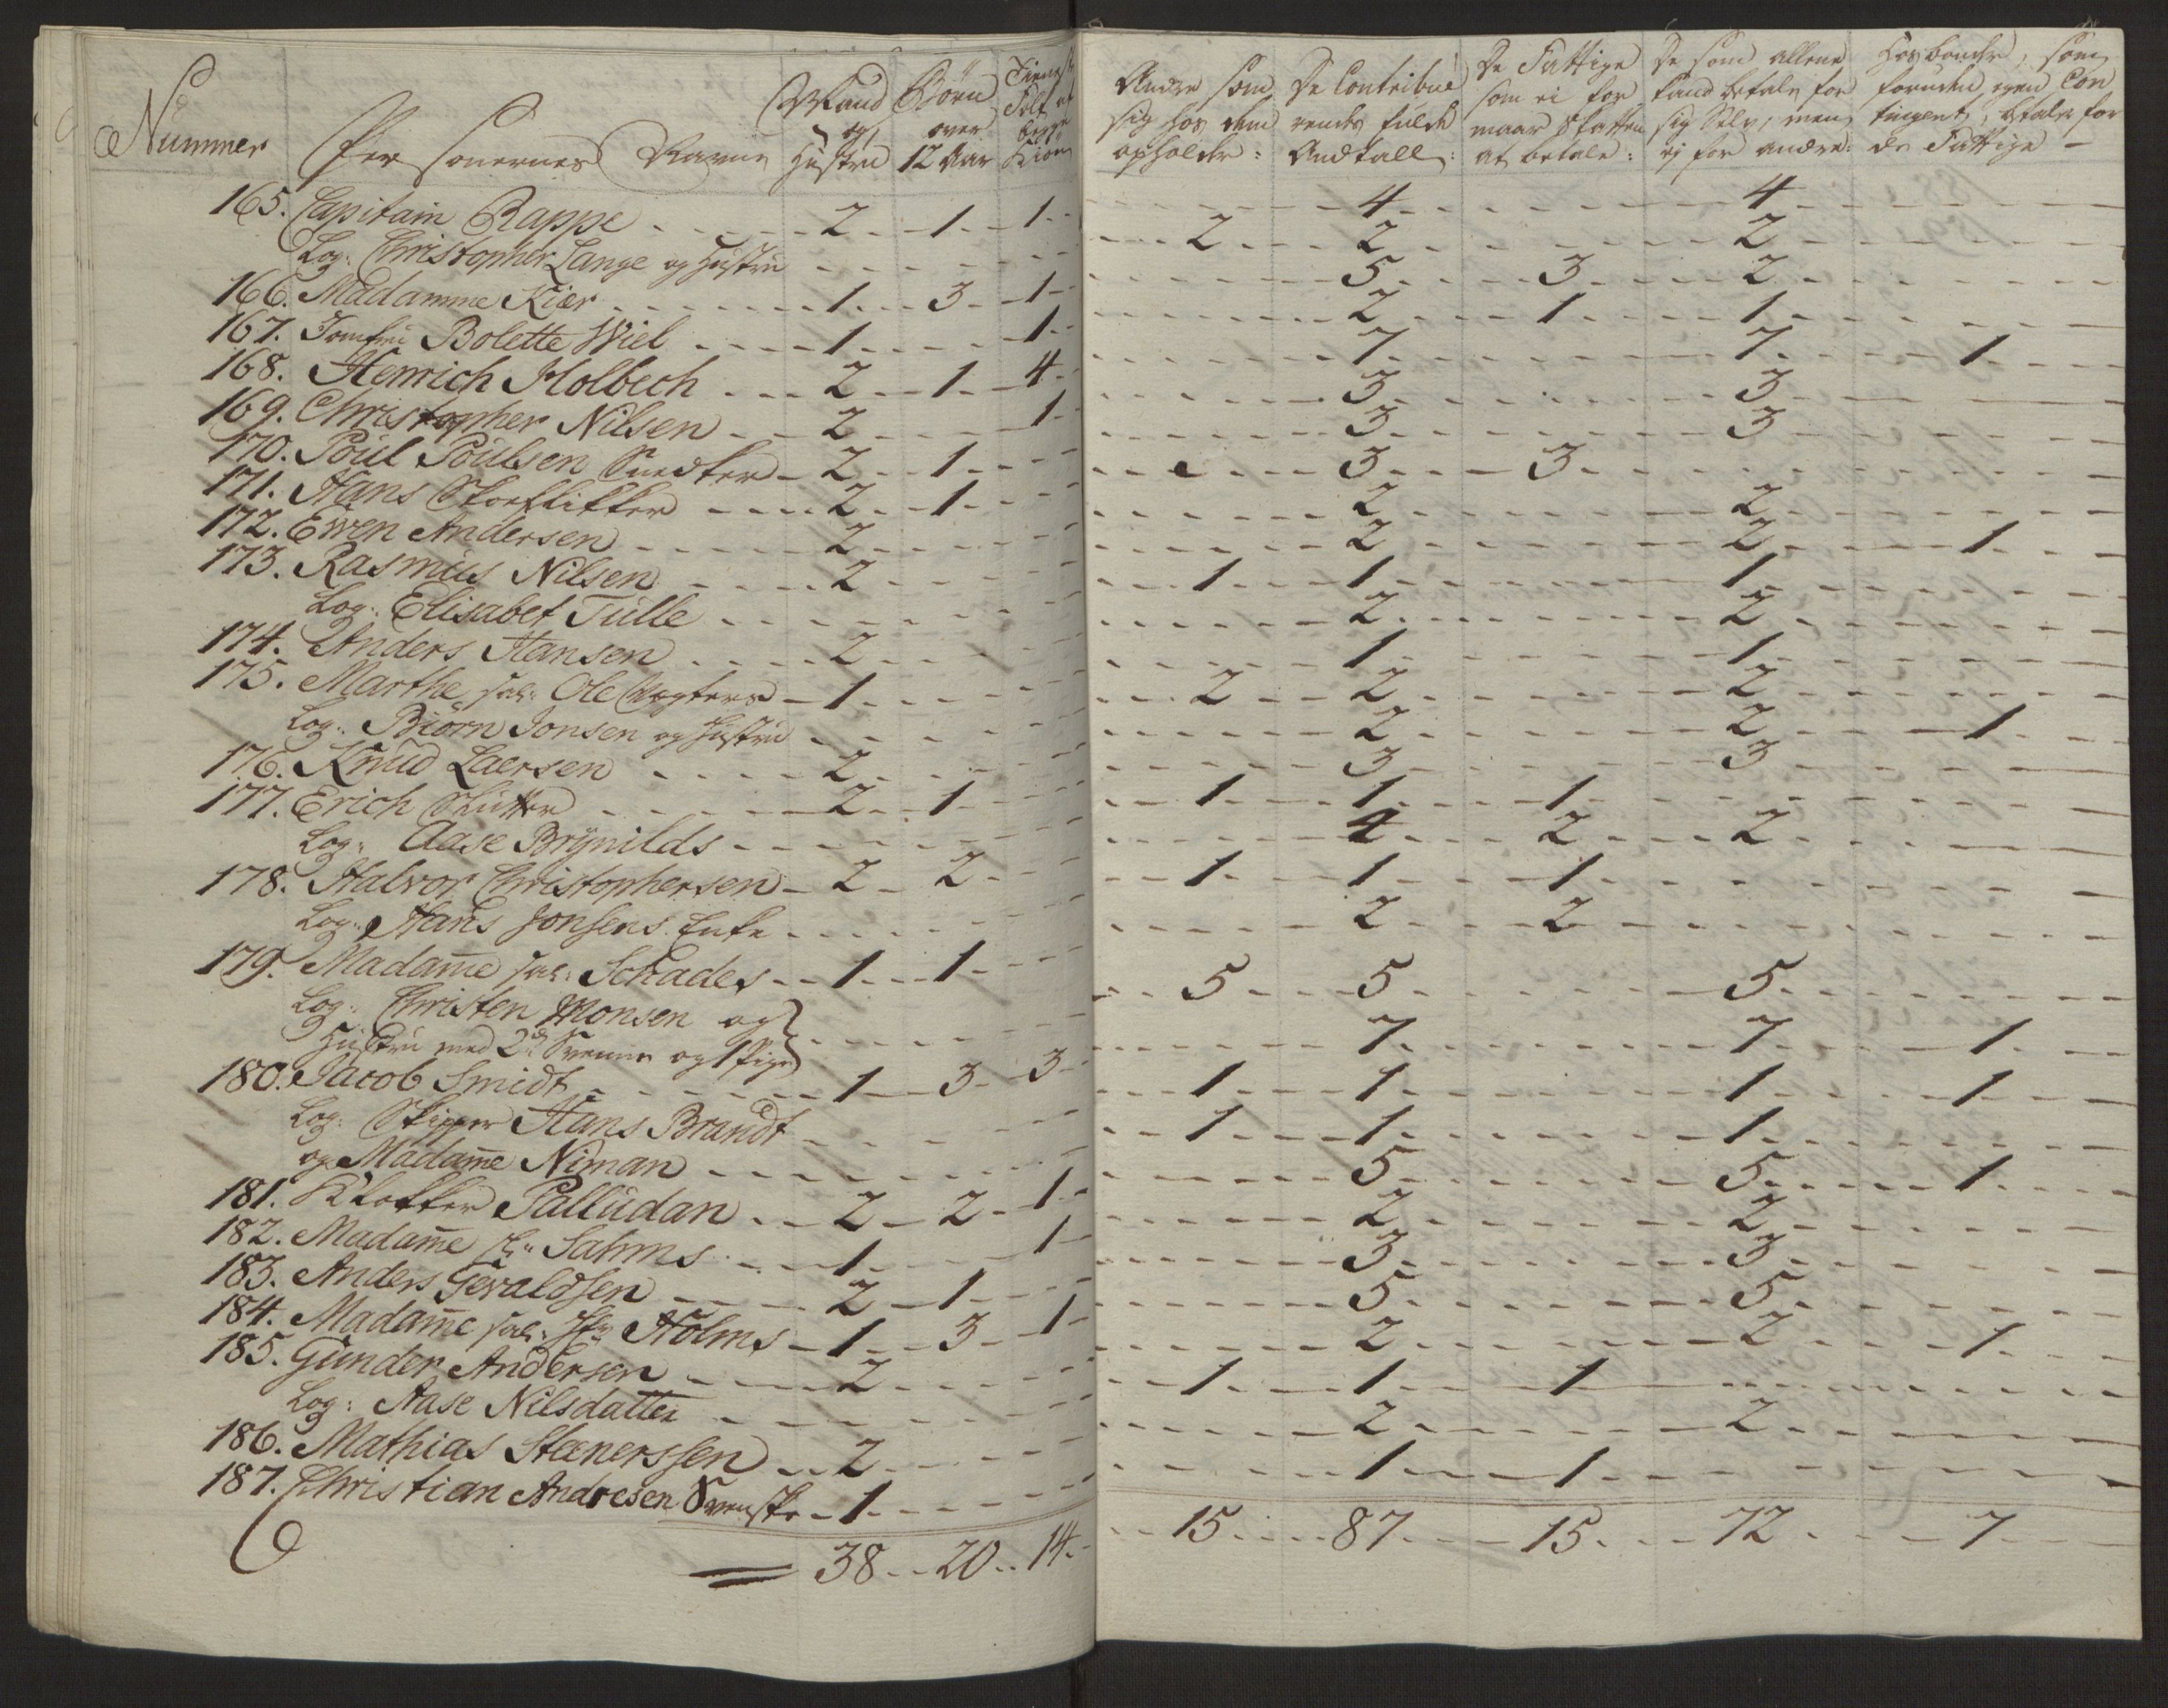 Nummer | Personernes Navne | Mand og Hustru | Börn over 12 Aar | Tieneste Folk af begge Kiön | Andre som sig hos dem opholder: | De Contribuerendes fulde Andtall: | De Fattige som ei formaar Skatten at betale: | De som allene kand betale for sig Selv, men ej for andre: | Hosbonder, som foruden egen Contingent, betaler for de Fattige
165. Capitain Rappe 2 1 1 4 4
Log: Christopher Lange og Hustru 2 2 2
166. Madamme Kiær 1 3 1 5 3 2
167. Jomfru Bolette Wiel 1 1 2 1 1
168. Henrich Holbech 2 1 4 7 7 1
169. Christopher Nilsen 2 1 3 3
170. Poul Poulsen Snedker 2 1 3 3
171. Hans Skoeflikker 2 1 3 3
172. Ewen Andersen 2 2 2
173. Rasmus Nilsen 2 2 2 1
Log: Elisabet Tulle 1 1 1
174. Anders Hansen 2 2 2
175. Marthe sal: Ole Vægters 1 1 1
Log: Biörn Jonsen og Hustru 2 2 2
176. Knud Laersen 2 2 2 1
177. Erich Skutter 2 1 3 3
Log: Aase Brynilds 1 1 1
178. Halvor Christophersen 2 2 4 2 2
Log: Hans Jonsens Enke 1 1 1
179. Madame sal: Schades 1 1 2 2
Log: Christen Monsen og
Hustru med 2de Svenne og 1 Pige 5 5 5
180. Jacob Smidt 1 3 3 7 7 1
Log: Skipper Hans Brandt 1 1 1 1
og Madame Niman 1 1 1
181. Klokker Palludan 2 2 1 5 5 1
182. Madame Sahms 1 1 2 2
183. Anders Gevaldsen 2 1 3 3
184. Madame sal: Holms 1 3 1 5 5
185. Gunder Andersen 2 2 2 1
Log: Aase Nilsdatter 1 1 1
186. Mathias Stænerssen 2 2 2
187. Christian Andresen Svenske 1 1 1
38 20 14 15 87 15 72 7